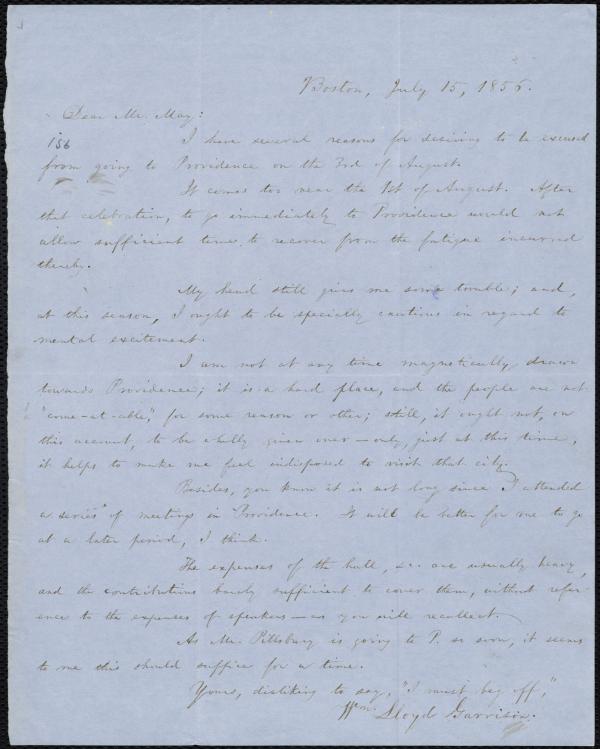 Boston, July 15, 1856.
Dear Mr. May:
156
I have several reasons for desiring to be excused
from going to Providence on the 3rd of August.
It comes too near the 1st of August. After
that celebration, to go immediately to Providence would not
allow sufficient time, to recover from the fatigue incurred
thereby.
My head still gives me some trouble; and,
at this season, I ought to be specially cautious in regard to
mental excitement.
I am not at any time magnetically drawn
towards Providence; it is a hard place, and the people are not
"come-at-able," for some reason or other; still, it ought not, on
this account, to be wholly given over—only, just at this time,
it helps to make me feel indisposed to visit that city.
Besides, you know it is not long since I attended
a series of meetings in Providence. It will be better for me to go
at a later period, I think.
The expenses of the hall, &c. are usually heavy,
and the contributions barely sufficient to cover them, without refer-
ence to the expenses of speakers—as you will recollect.
As Mr. Pillsbury is going to P. so soon, it seems
to me this should suffice for a time.
Yours, disliking to say, "I must beg off,"
Wm. Lloyd Garrison.